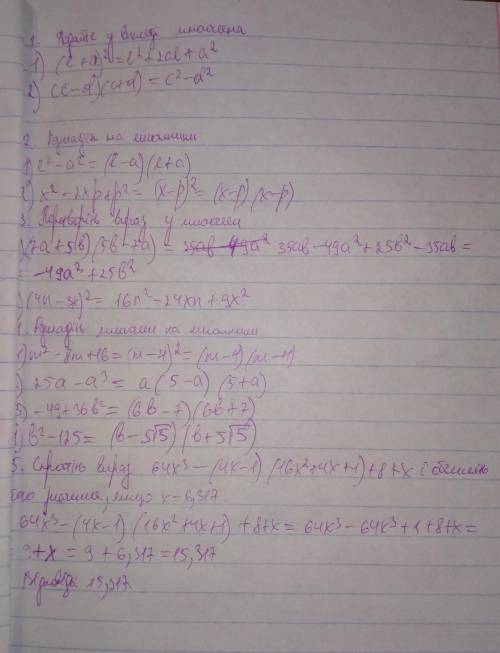 1. Подайте у вигляді многочлена
1) (в+а)² = в²+2ав+а²
2) (c-d)(c+d) = c²-d²
2. Розкладіть на множники
1) в²-а² = (в-а)(в+а)
2) x²-2xp+p² = (x-p)² = (x-p)(x-p)
3. Перетворіть вираз у многочлен
)(7a+5b)(5b-7a) = 35ab-49a² 35ab-49a²+25b²-35ab =
= -49a²+25b²
)(4n-3x)² = 16n²-24xn+9x²
Розкладіть многочлен на множники
1) m²-8m+16 = (m-4)² = (m-4)(m-4)
) 25a-a³ = a(5-a)(5+a)
3) -49+36b² = (6b-7)(6b+7)
b²-125 = (b-5√5)(b+5√5)
5. Спростіть вираз 64x³-(4x-1)(16x²+4x+1)+8+x і обчисліть
його значення, якщо x=6,317.
64x³-(4x-1)(16x²+4x+1)+8+x = 64x³-64x³+1+8+x =
= 9+x = 9+6,317 = 15,317
Відповідь 15,317.